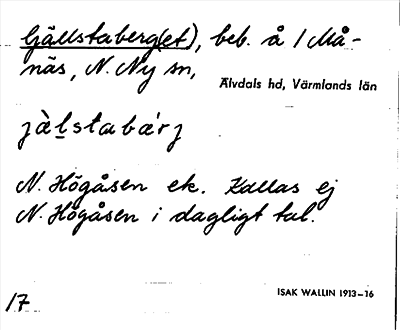 Gjällstaberg(et), beb. å 1 Må-
näs, N. Ny sn,
Älvdals hd, Värmlands län
jä̀l̥stabœ́rj
N. Högåsen ek. Kallas ej
N. Högåsen i dagligt tal.
ISAK WALLIN 1913–16
17